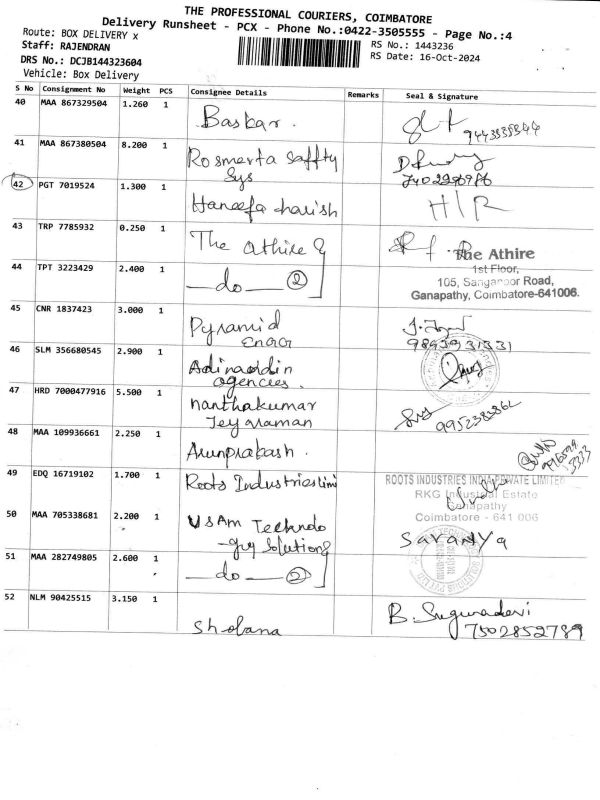 THE PROFESSIONAL COURIERS, COIMBATORE
Delivery Runsheet - PCX - Phone No.:0422-3505555 - Page No.:4
Route: BOX DELIVERY x
RS No.: 1443236
Staff: RAJENDRAN
RS Date: 16-Oct-2024
DRS No.: DCJB144323604
Vehicle: Box Delivery
S No Consignment No Weight PCS Consignee Details Remarks Seal & Signature
40 MAA 867329504 1.260 1
Baskar.
41 MAA 867380504 8.200 1
Rosmerta Saffty
Sys
42 PGT 7019524 1.300 1
Haneefa harish H/R
43 TRP 7785932 0.250 1
The Athire
The Athire
1st Floor,
44 TPT 3223429 2.400 1
do 2
105, Road,
Ganapathy, Coimbatore-641006.
45 CNR 1837423 3.000 1
Pyramid
46 SLM 356680545 2.900 1
agencies.
47 HRD 7000477916 5.500 1
nanthakumar
Jeyaraman
48 MAA 109936661 2.250 1
Arunprakash.
49 EDQ 16719102 1.700 1
Roots Industries limi
ROOTS INDUSTRIES INDIA PRIVATE LIMITED
RKG Industrial Estate
Ganapathy
Coimbatore - 641 006
50 MAA 705338681 2.200 1
Saranya
51 MAA 282749805 2.600 1
do 2
52 NLM 90425515 3.150 1
Shobana
B. Sugunadevi
7502852789